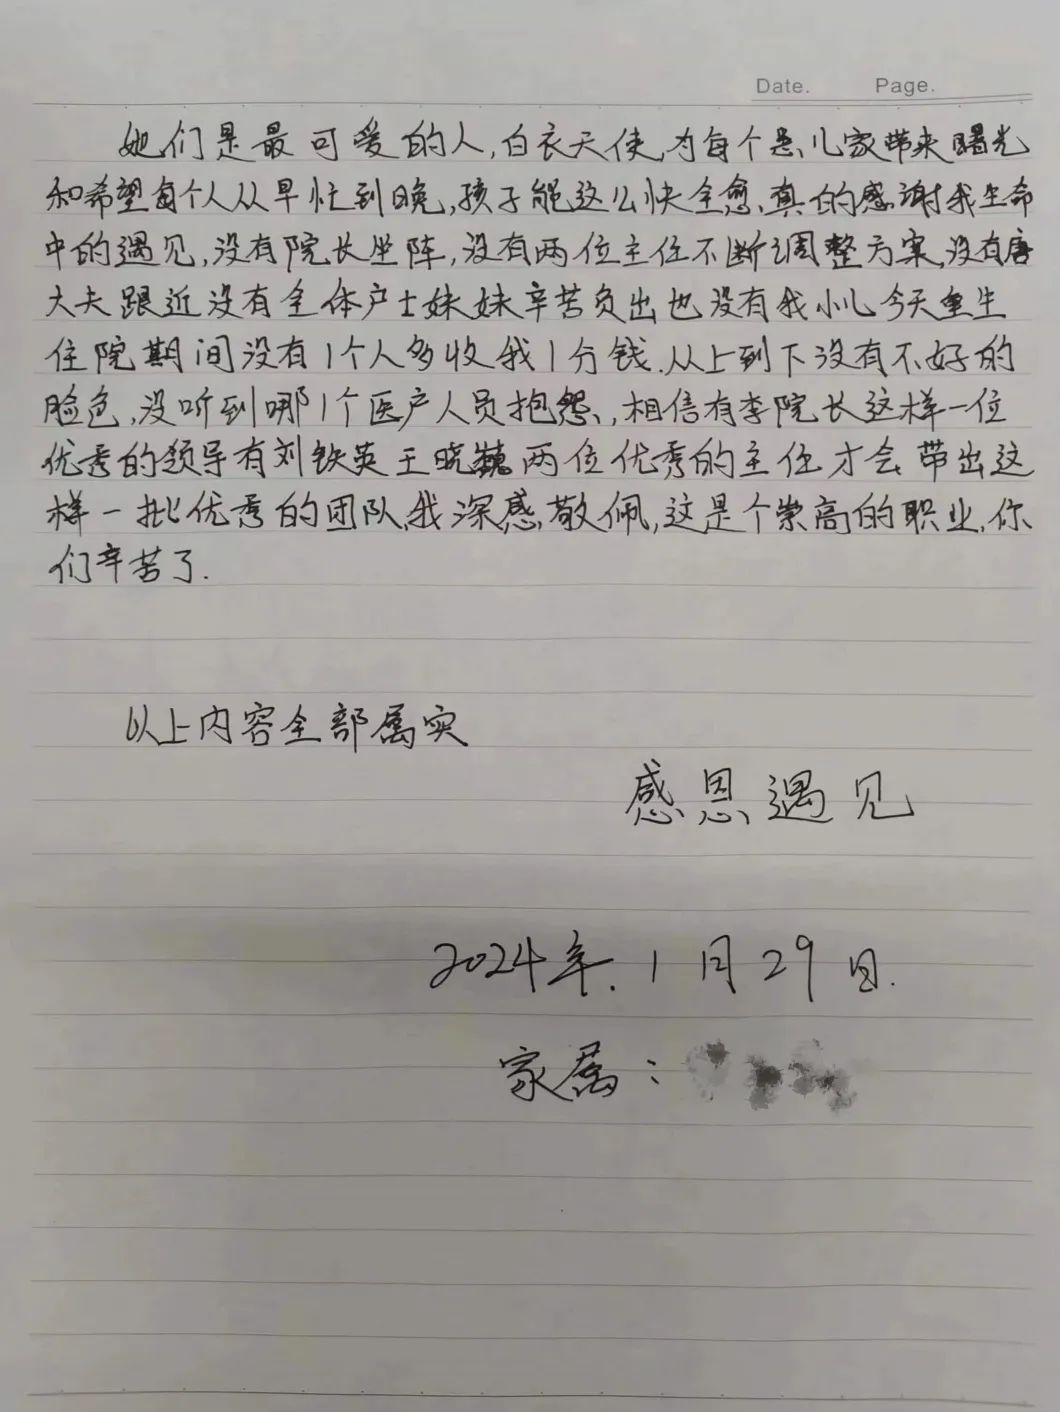 Date. Page.
她们是最可爱的人,白衣天使,为每个患儿家带来曙光
和希望每个人从早忙到晚,孩子能这么快全愈、真的感谢我生命
中的遇见,没有院长坐阵,没有两位主任不断调整方案,没有唐
大夫跟近没有全体户士妹妹辛苦负出也没有我小儿今天重生
住院期间没有1个人多收我1分钱.从上到下没有不好的
脸色,没听到哪1个医户人员抱怨,相信有李院长这样一位
优秀的领导有刘铁英王晓巍两位优秀的主任才会带出这
样一批优秀的团队,我深感敬佩,这是个崇高的职业,你
们辛苦了.
以上内容全部属实
感恩遇见
2024年.1月29日.
家属: